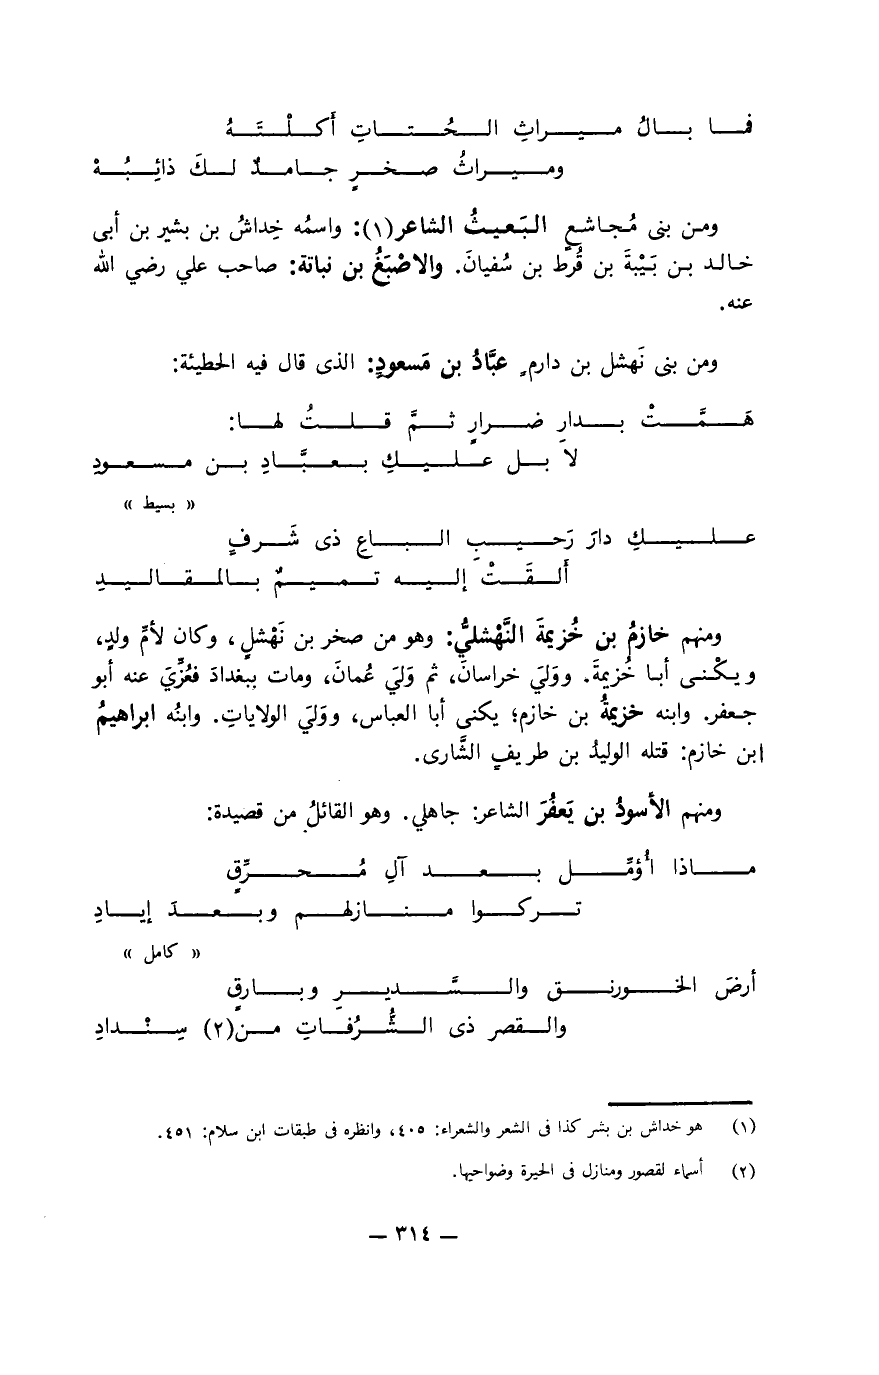 فما بالُ ميراثِ الحُتاتِ أَكلْتَهُ
وميراثُ صخرٍ جامدٌ لكَ ذائِبُهْ
ومن بنى مُجاشعٍ البَعيثُ الشاعر(١): واسمُه خِداشُ بن بشير بن أبى
خالد بن بَيْبَةَ بن قُرط بن سُفيانَ. والاصْبَغُ بن نباتة: صاحب علي رضي الله
عنه.
ومن بنى نَهشل بن دارمٍ عبَّادُ بن مَسعودٍ: الذى قال فيه الحطيئة:
هَمَّتْ بدارِ ضرارٍ ثمَّ قلتُ لها:
لا بل عليكِ بعبَّادِ بن مسعودِ
« بسيط »
عليكِ دارَ رَحيبِ الباعِ ذى شَرفٍ
ألقَتْ إليه تميمٌ بالمقاليدِ
ومنهم خازمُ بن خُزيمةَ النَّهشليُّ: وهو من صخر بن نَهْشلٍ، وكان لأمِّ ولدٍ،
ويكْنى أبا خُزيمةَ. ووَليَ خراسانَ، ثم وَليَ عُمانَ، ومات ببغدادَ فعُزِّيَ عنه أبو
جعفر. وابنه خزيمةُ بن خازم؛ يكنى أبا العباس، ووَليَ الولاياتِ. وابنُه ابراهيمُ
ابن خازم: قتله الوليدُ بن طريفٍ الشَّارى.
ومنهم الأسودُ بن يَعفُرَ الشاعر: جاهلي. وهو القائلُ من قصيدة:
ماذا أُؤمِّل بعد آلِ مُحرِّقٍ
تركوا منازلهم وبعدَ إيادِ
« كامل »
أرضَ الخورنق والسَّديرِ وبارقٍ
والقصر ذى الشُّرُفاتِ من(٢) سِنْدادِ
(١) هو خداش بن بشر كذا فى الشعر والشعراء: ٤٠٥، وانظره فى طبقات ابن سلام: ٤٥١.
(٢) أسماء لقصور ومنازل فى الحيرة وضواحيها.
— ٣١٤ —